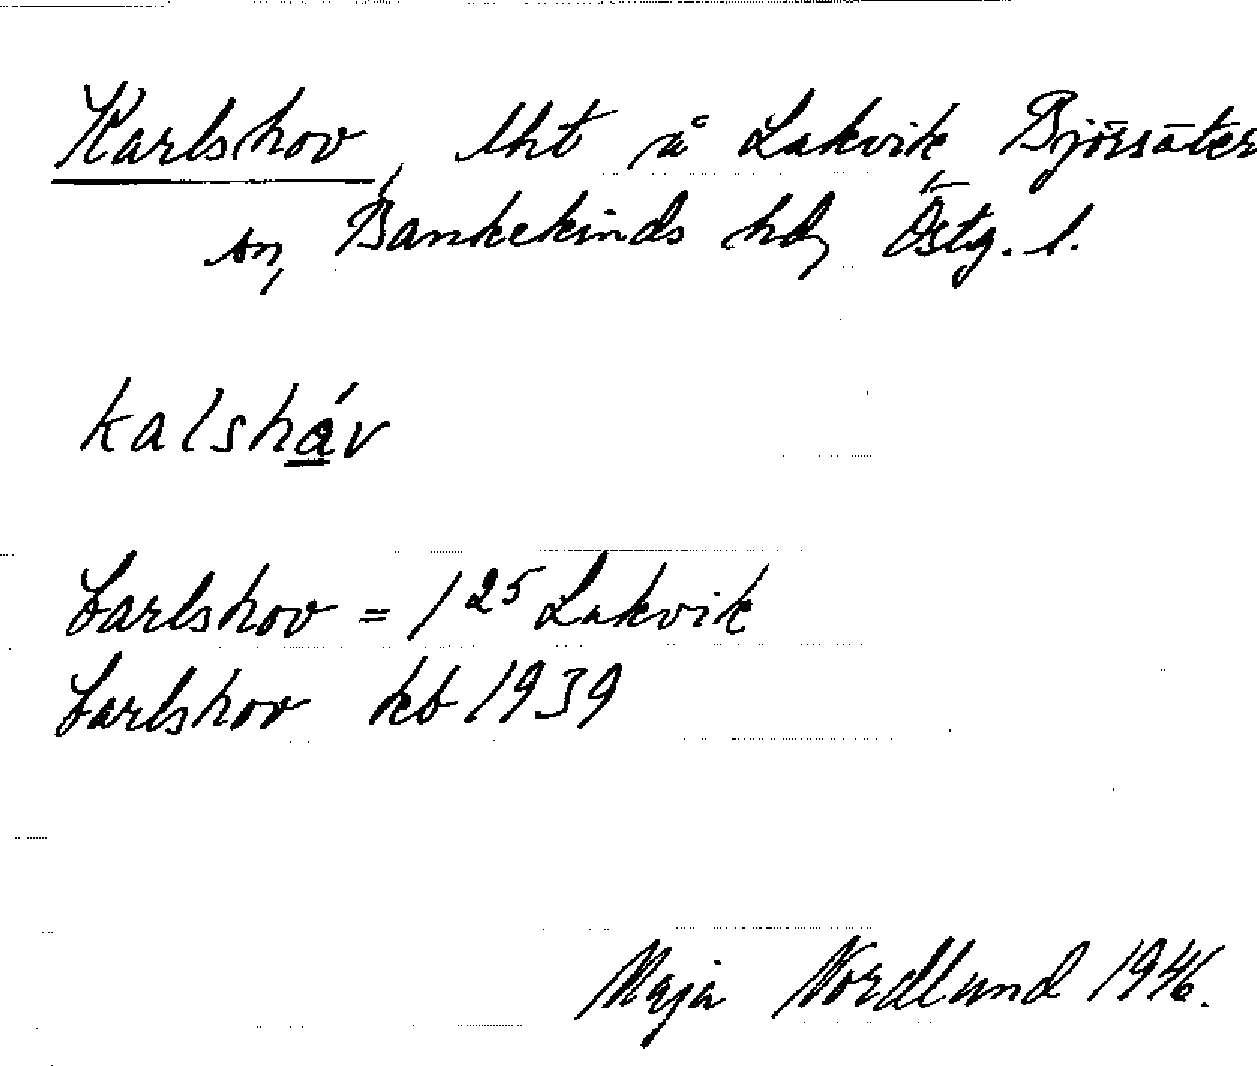 Karlshov, lht å Lakvik Björsäter
sn, Bankekinds hd, Östg. l.
kalsháv
Carlshov = 1 25 Lakvik
Carlshov kb 1939
Maja Nordlund 1946.